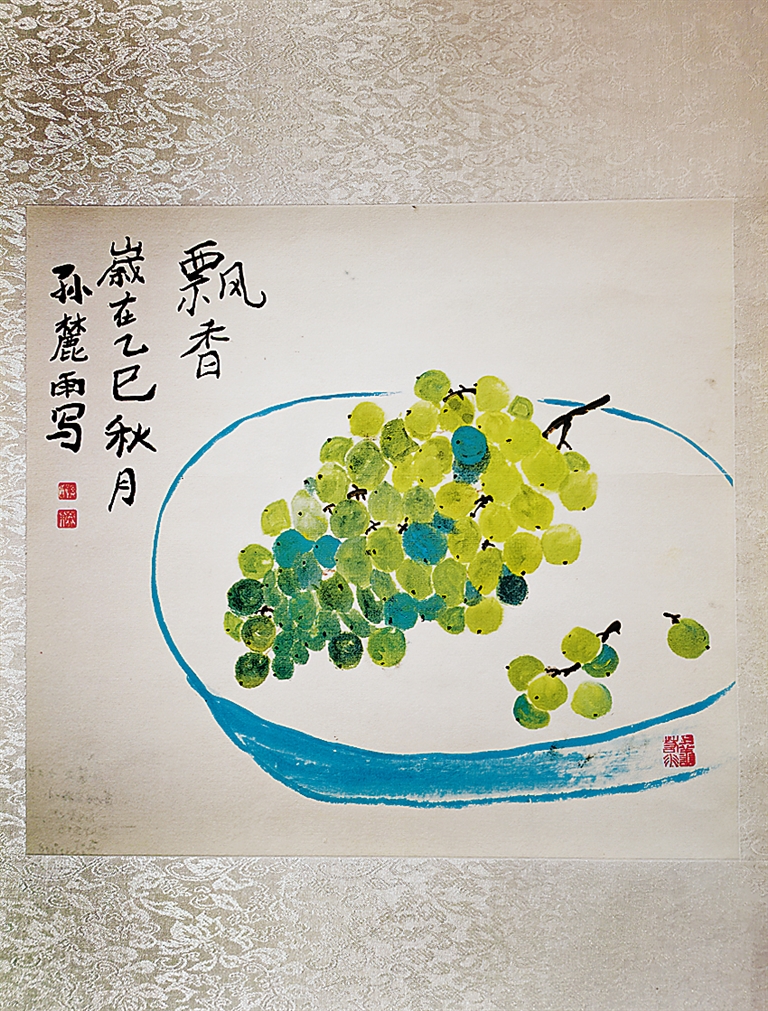 飘香
歳在乙巳秋月
孙麓雨写